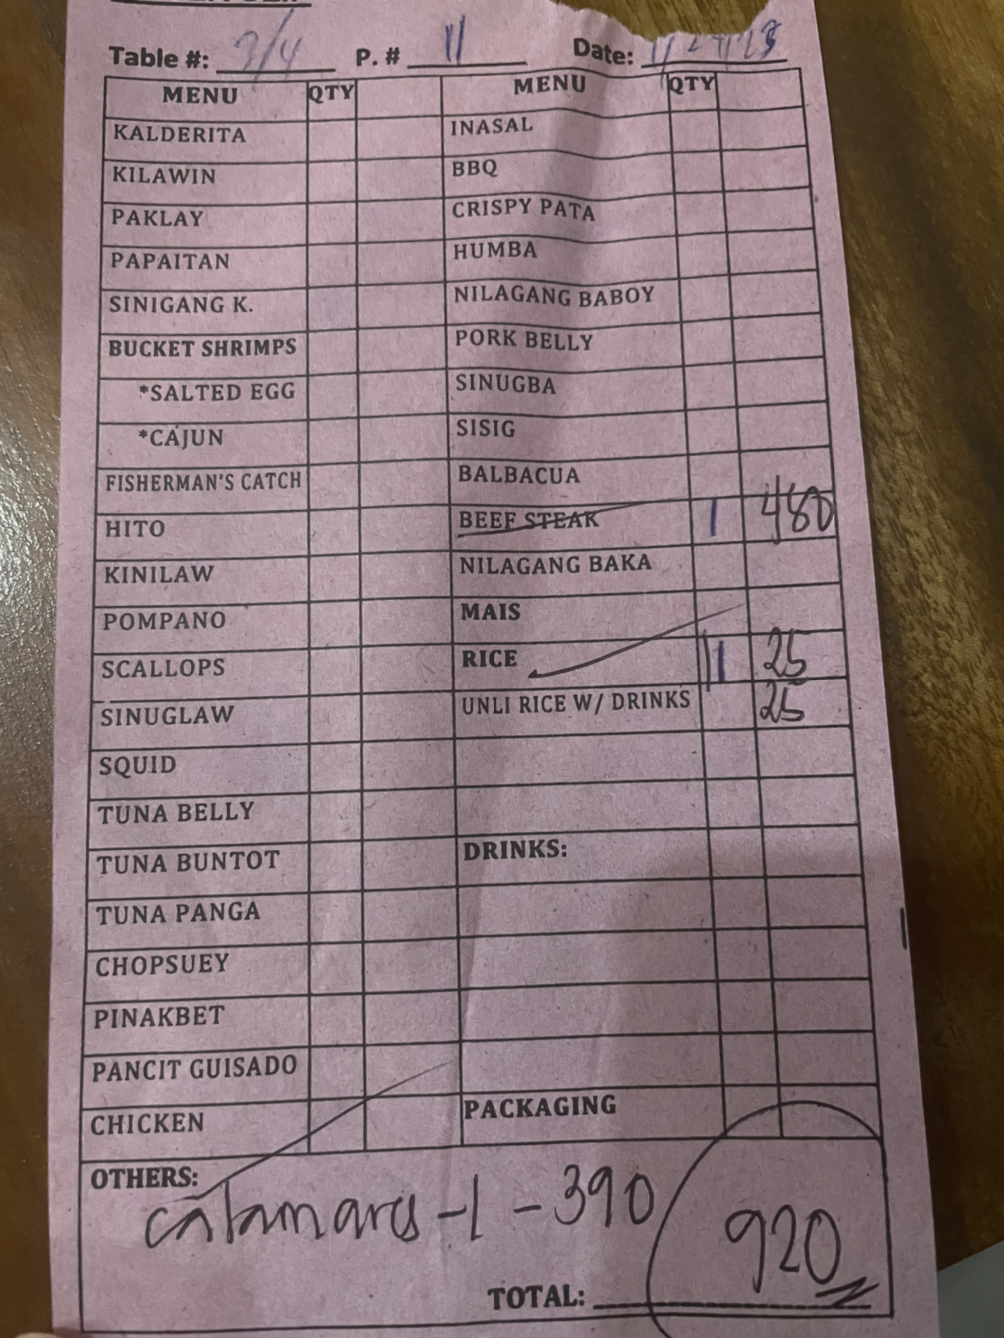 Table #: 3/4 P. # 11 Date: 1/29/23
MENU QTY MENU QTY
KALDERITA INASAL
KILAWIN BBQ
PAKLAY CRISPY PATA
PAPAITAN HUMBA
SINIGANG K. NILAGANG BABOY
BUCKET SHRIMPS PORK BELLY
*SALTED EGG SINUGBA
*CAJUN SISIG
FISHERMAN'S CATCH BALBACUA
HITO BEEF STEAK 1 480
KINILAW NILAGANG BAKA
POMPANO MAIS
SCALLOPS RICE 11 25
SINUGLAW UNLI RICE W/ DRINKS 25
SQUID
TUNA BELLY
TUNA BUNTOT DRINKS:
TUNA PANGA
CHOPSUEY
PINAKBET
PANCIT GUISADO
CHICKEN PACKAGING
OTHERS:
calamares -1 - 390
TOTAL: 920